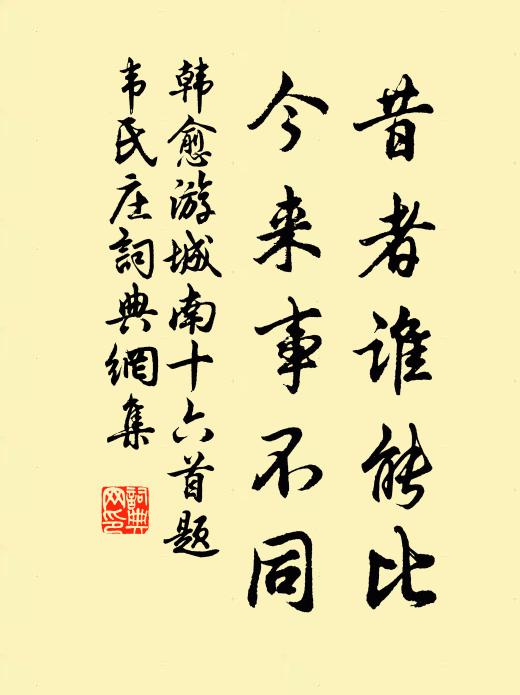 昔者谁能比
今来事不同
韩愈游城南十六首题
韦氏庄詞典網集
詞典網印